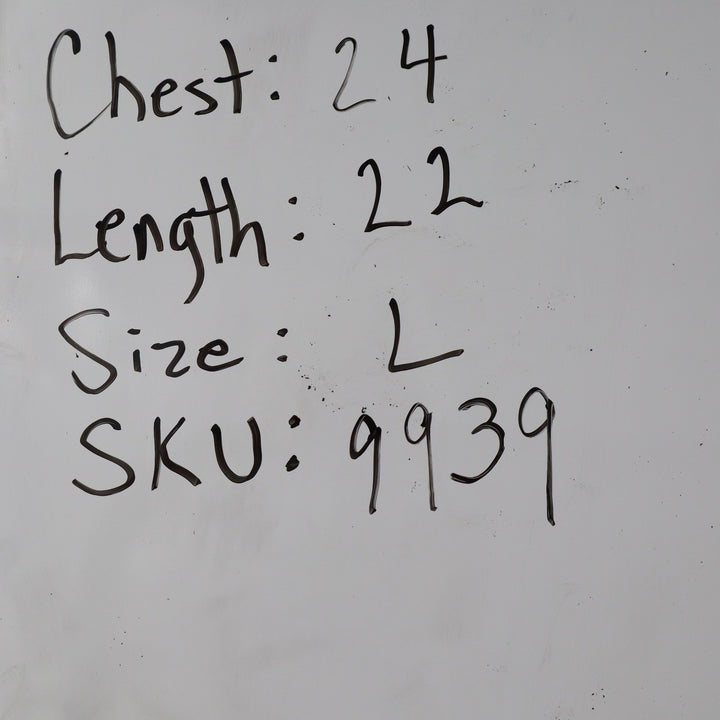 Chest: 24
Length: 22
Size: L
SKU: 9939